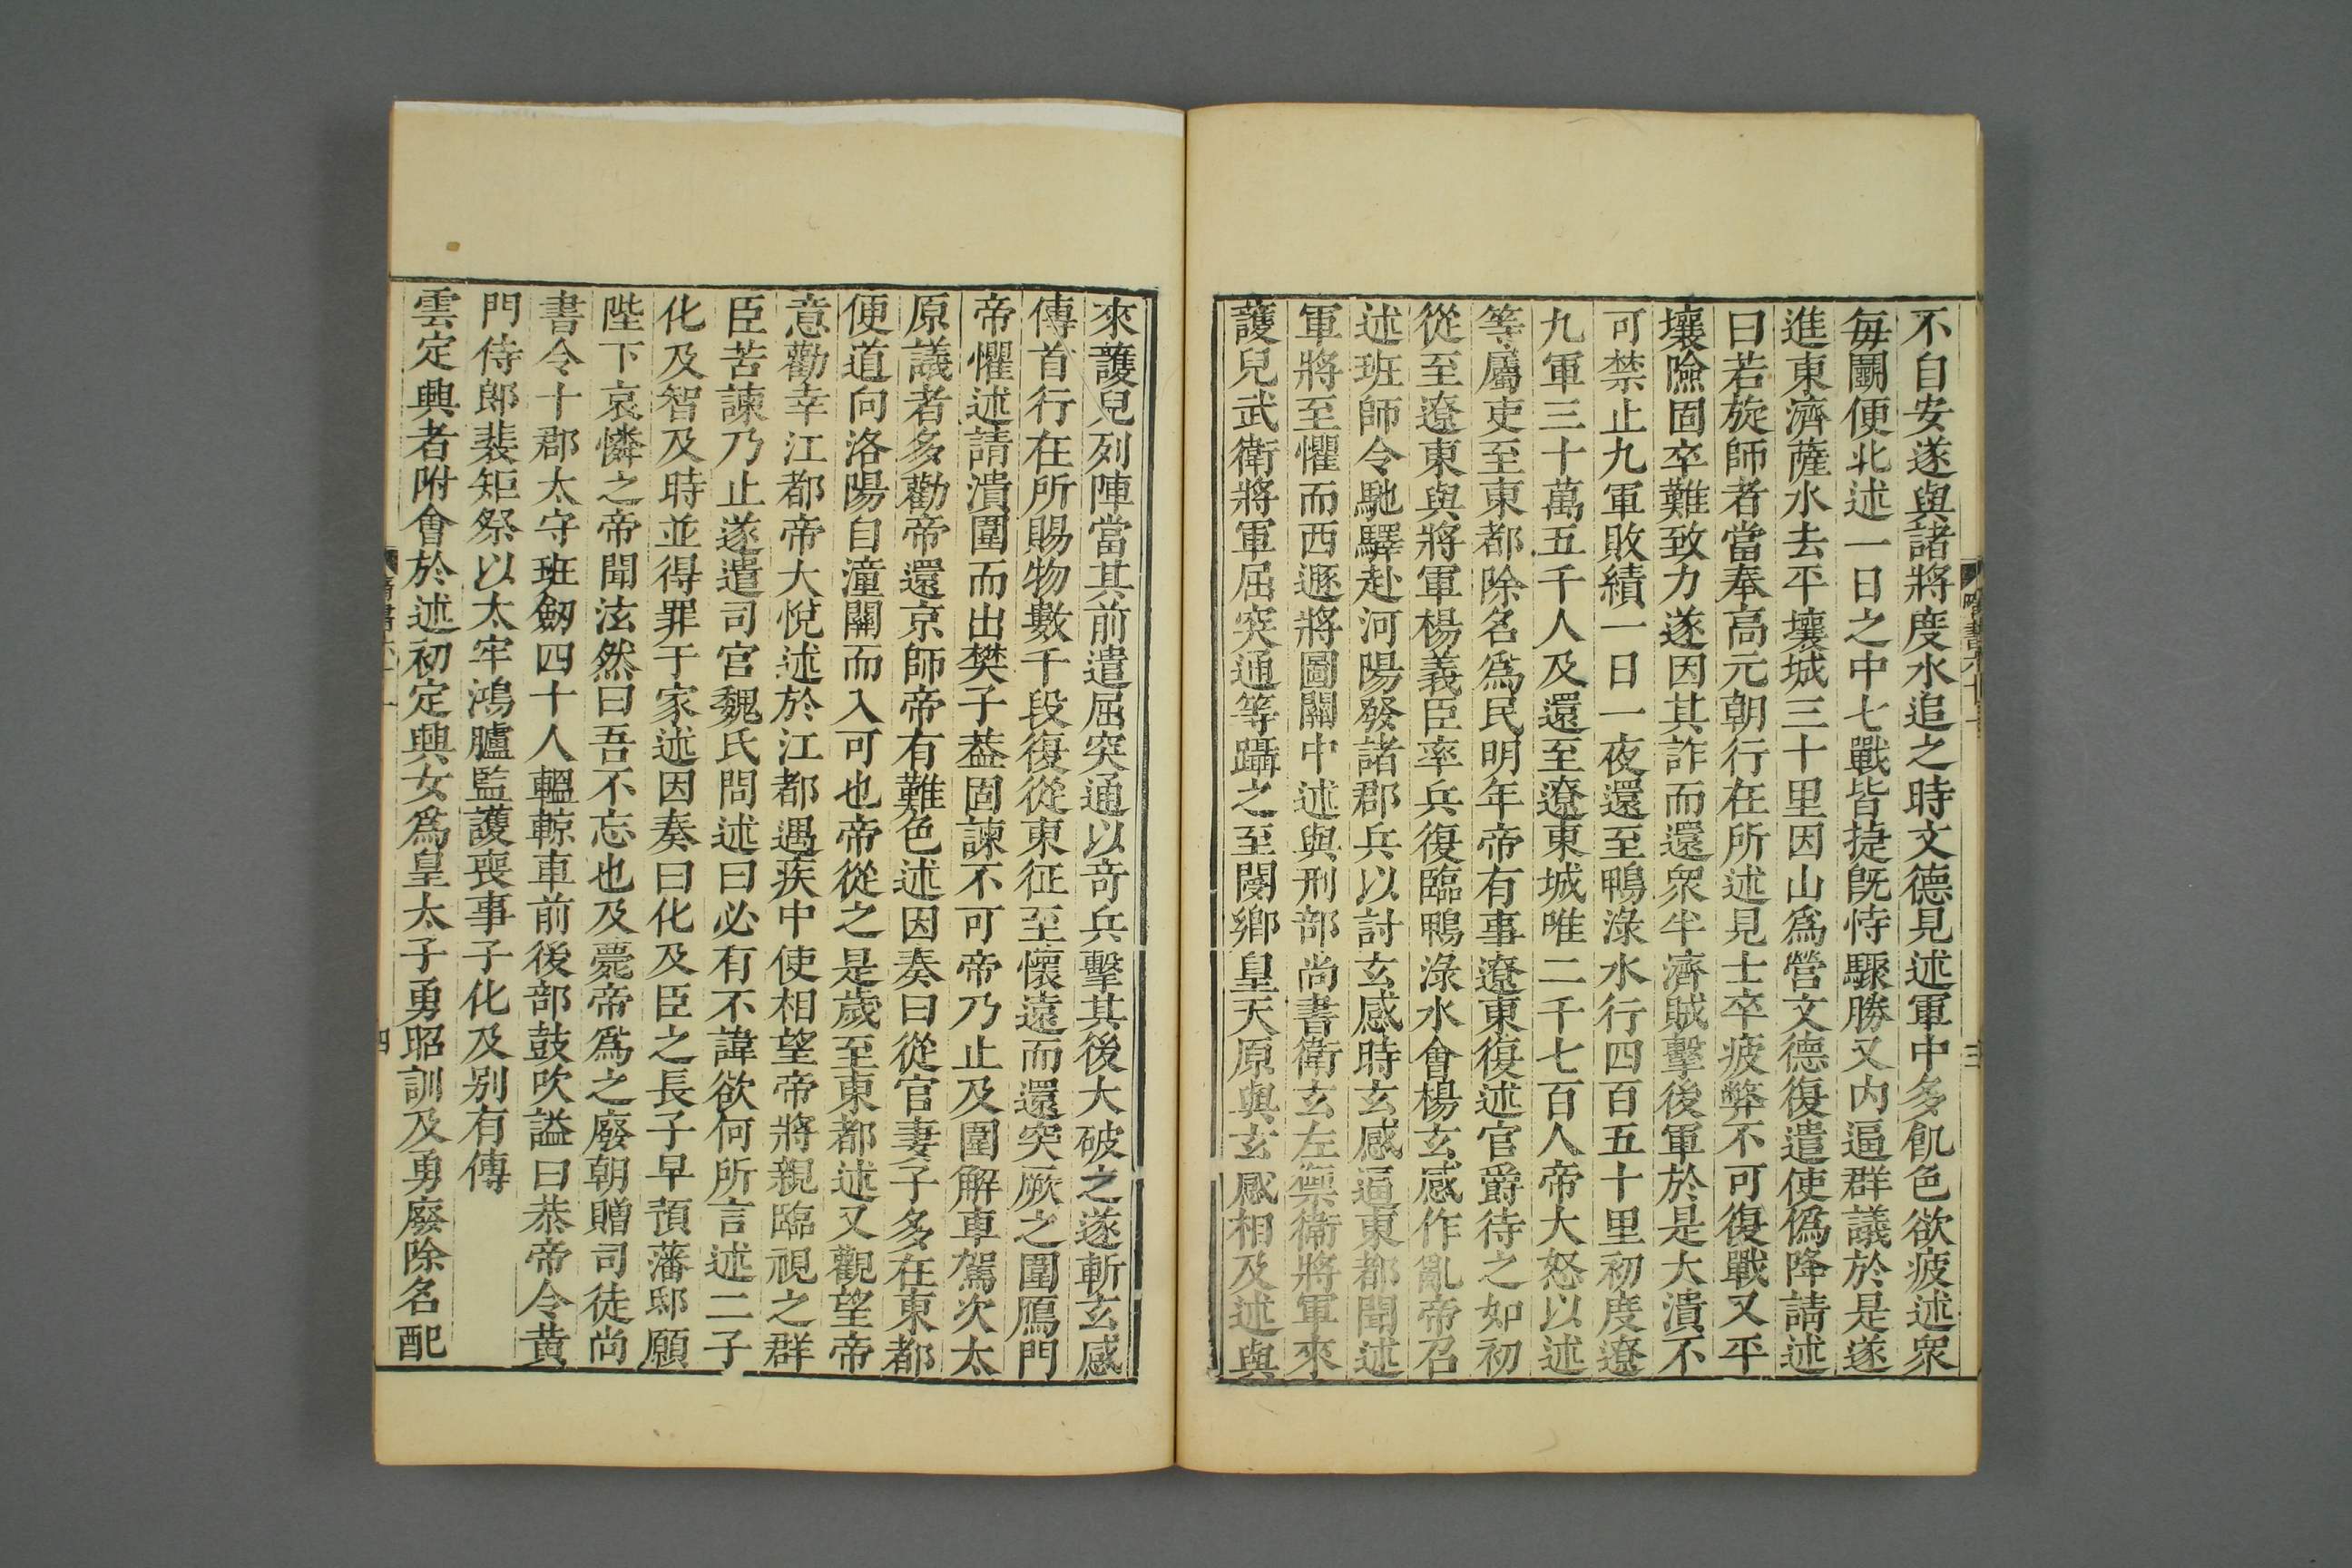 不自安遂與諸將度水追之時文德見述軍中多飢色欲疲述衆
每鬭便北述一日之中七戰皆捷旣恃驟勝又内逼群議於是遂
進東濟薩水去平壤城三十里因山爲營文德復遣使僞降請述
曰若旋師者當奉高元朝行在所述見士卒疲弊不可復戰又平
壤險固卒難致力遂因其詐而還衆半濟賊擊後軍於是大潰不
可禁止九軍敗績一日一夜還至鴨淥水行四百五十里初度遼
九軍三十萬五千人及還至遼東城唯二千七百人帝大怒以述
等屬吏至東都除名爲民明年帝有事遼東復述官爵待之如初
從至遼東與將軍楊義臣率兵復臨鴨淥水會楊玄感作亂帝召
述班師令馳驛赴河陽發諸郡兵以討玄感時玄感逼東都聞述
軍將至懼而西遯將圖關中述與刑部尚書衛玄左禦衛將軍來
護兒武衛將軍屈突通等躡之至閿鄉皇天原與玄感相及述與
來護兒列陣當其前遣屈突通以奇兵擊其後大破之遂斬玄感
傳首行在所賜物數千段復從東征至懷遠而還突厥之圍鴈門
帝懼述請潰圍而出樊子葢固諫不可帝乃止及圍解車駕次太
原議者多勸帝還京師帝有難色述因奏曰從官妻子多在東都
便道向洛陽自潼關而入可也帝從之是歲至東都述又觀望帝
意勸幸江都帝大悅述於江都遇疾中使相望帝將親臨視之群
臣苦諫乃止遂遣司宮魏氏問述曰必有不諱欲何所言述二子
化及智及時並得罪于家述因奏曰化及臣之長子早預藩邸願
陛下哀憐之帝聞泫然曰吾不忘也及薨帝爲之廢朝贈司徒尚
書令十郡太守班劒四十人轀輬車前後部鼓吹謚曰恭帝令黄
門侍郎裴矩祭以太牢鴻臚監護喪事子化及别有傳
雲定興者附會於述初定興女爲皇太子勇昭訓及勇廢除名配
四